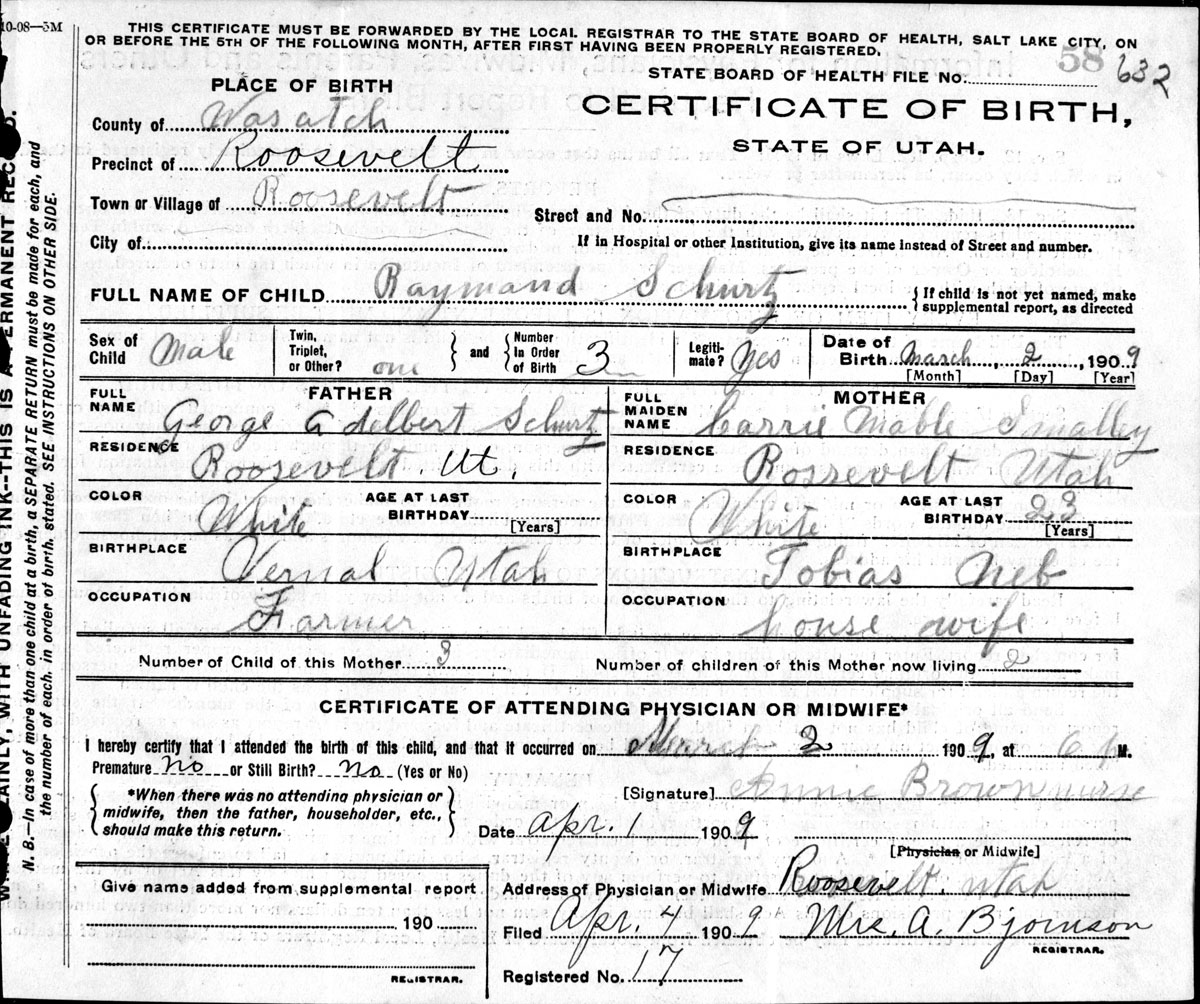 10-08—3M
THIS CERTIFICATE MUST BE FORWARDED BY THE LOCAL REGISTRAR TO THE STATE BOARD OF HEALTH, SALT LAKE CITY, ON
OR BEFORE THE 5TH OF THE FOLLOWING MONTH, AFTER FIRST HAVING BEEN PROPERLY REGISTERED.
STATE BOARD OF HEALTH FILE No. 58 632
PLACE OF BIRTH
CERTIFICATE OF BIRTH,
STATE OF UTAH.
County of Wasatch
Precinct of Roosevelt
Town or Village of Roosevelt
Street and No.
City of
If in Hospital or other Institution, give its name instead of Street and number.
FULL NAME OF CHILD Raymand Schurtz
{ If child is not yet named, make
supplemental report, as directed
Sex of Child Male
Twin, Triplet, or Other? one } and { Number In Order of Birth 3
Legiti-mate? Yes
Date of Birth March 2, 1909
[Month] [Day] [Year]
FATHER
MOTHER
FULL NAME George Adelbert Schurtz
FULL MAIDEN NAME Carrie Mable Smalley
RESIDENCE Roosevelt Ut.
RESIDENCE Rossevelt Utah
COLOR White AGE AT LAST BIRTHDAY [Years]
COLOR White AGE AT LAST BIRTHDAY 23 [Years]
BIRTHPLACE Vernal Utah
BIRTHPLACE Tobias Neb
OCCUPATION Farmer
OCCUPATION house wife
Number of Child of this Mother 3
Number of children of this Mother now living 2
CERTIFICATE OF ATTENDING PHYSICIAN OR MIDWIFE*
I hereby certify that I attended the birth of this child, and that it occurred on March 2 1909, at 6 p M.
Premature No or Still Birth? No (Yes or No)
{ *When there was no attending physician or
midwife, then the father, householder, etc.,
should make this return. }
[Signature] Annie Brown nurse
Date Apr. 1 1909
[Physician or Midwife]
Give name added from supplemental report
190
REGISTRAR.
Address of Physician or Midwife Roosevelt, Utah
Filed Apr. 4 1909 Mrs. A. Bjornson
REGISTRAR.
Registered No. 17
PLAINLY, WITH UNFADING INK--THIS IS A PERMANENT RECORD.
N. B.—In case of more than one child at a birth, a SEPARATE RETURN must be made for each, and
the number of each, in order of birth, stated. SEE INSTRUCTIONS ON OTHER SIDE.